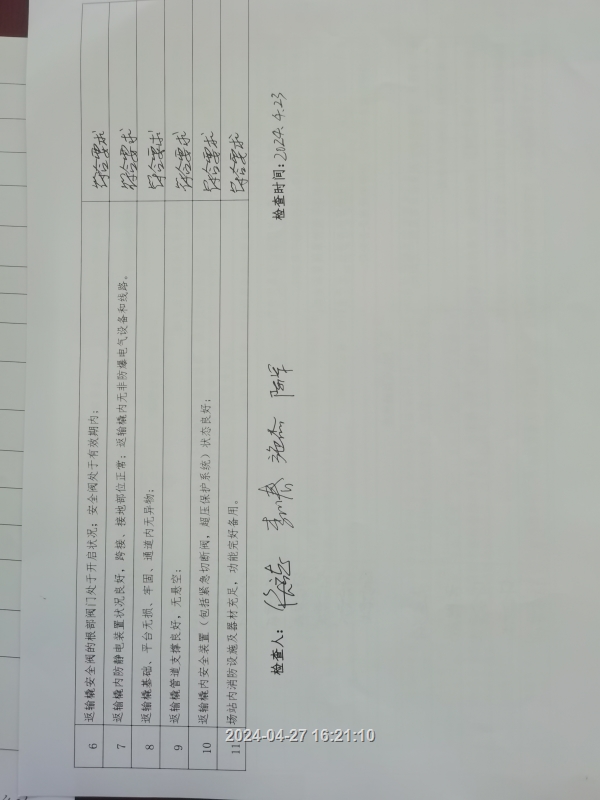 6 返输橇安全阀的根部阀门处于开启状况；安全阀处于有效期内； 符合要求
7 返输橇内防静电装置状况良好，跨接、接地部位正常；返输橇内无非防爆电气设备和线路。 符合要求
8 返输橇基础、平台无损、牢固、通道内无异物； 符合要求
9 返输橇管道支撑良好，无悬空； 符合要求
10 返输橇内安全装置（包括紧急切断阀，超压保护系统）状态良好； 符合要求
11 场站内消防设施及器材充足，功能完好备用。 符合要求
检查人： 施杰 陈军 检查时间：2024.4.23
2024-04-27 16:21:10